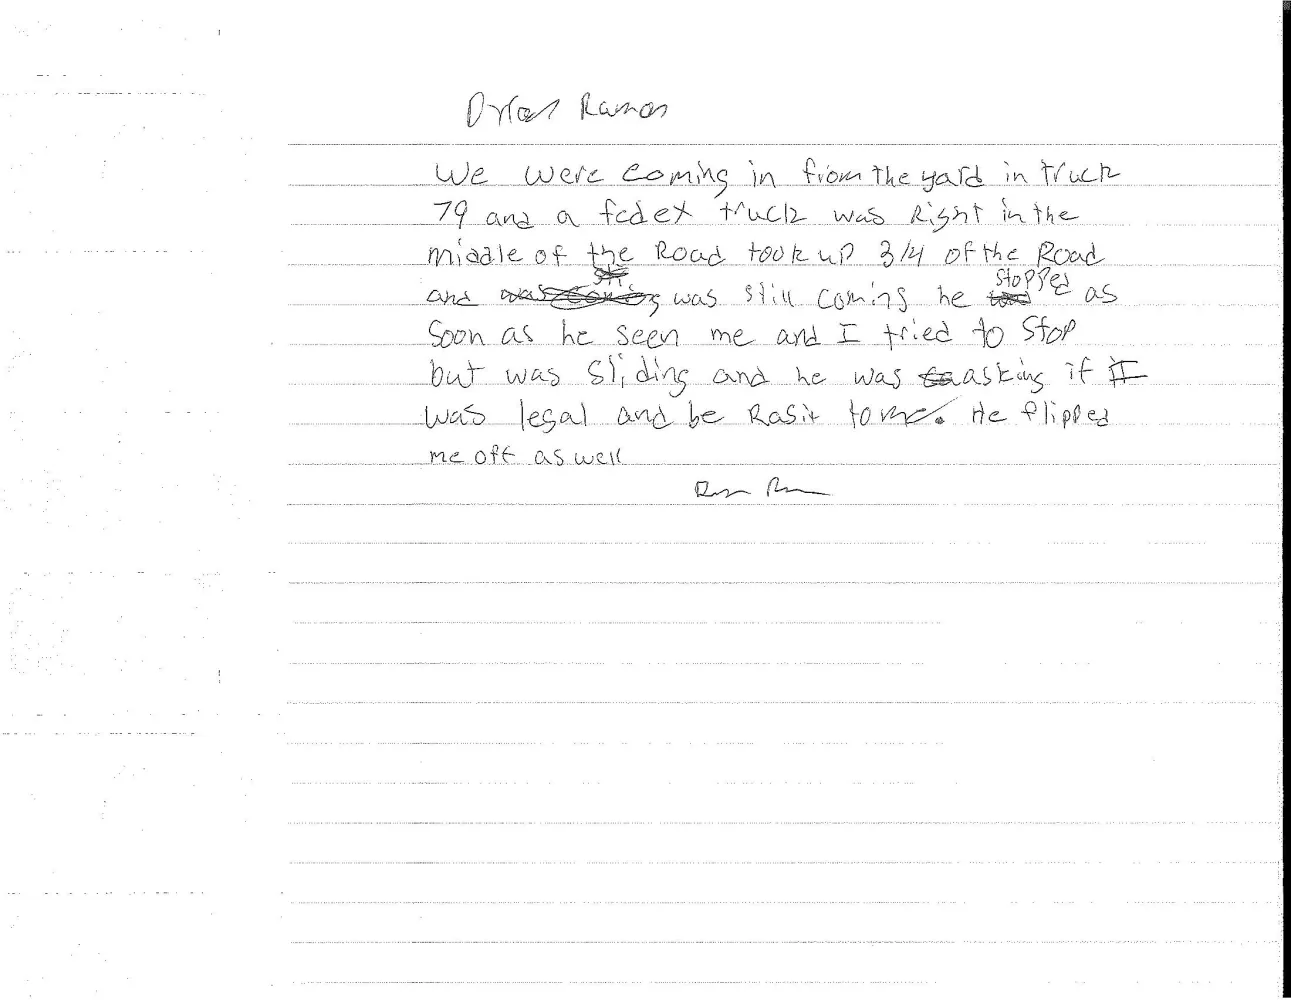 Dylan Ramos
We were coming in from the yard in truck
79 and a fedex truck was Right in the
middle of the Road took up 3/4 of the Road
and was still coming he stopped as
Soon as he seen me and I tried to stop
but was Sliding and he was asking if I
was legal and be Rasit to me. He flipped
me off as well